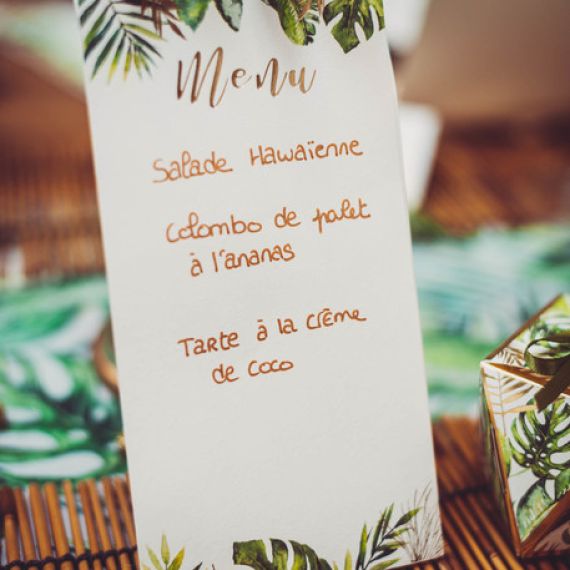 Menu
Salade Hawaïenne
Colombo de palet
à l'ananas
Tarte à la crême
de coco